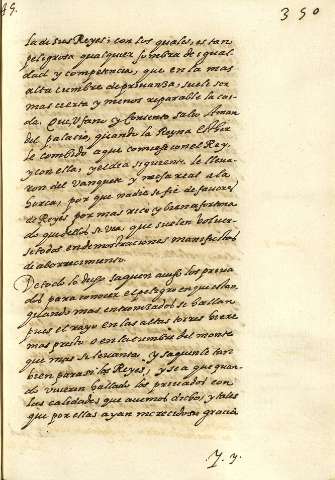 49. 350
la de sus Reyes; con los quales, es tan
peligrosa qualquier sombra de igual
dad y competencia, que en la mas
alta cumbre de priuanza, suele ser
mas cierta y menos reparable la cai
da. Que Vfano y contento salio Aman
del palacio, quando la Reyna Esther
le combidò a que comiesse con el Rey,
y con ella, y el dia siguiente le lleua
ron del vanquete y mesa real a la
horca, por que nadie se fie de fauores
de Reyes, por mas rico y buena fortuna
do que dellos se vea, que suelen voluer
se todos en demostraciones manifiestas
de aborrecimiento.
De todo lo dicho saquen auiso los priua
dos para conocer el peligro en que estan,
quando mas entronizados se hallan
pues el rayo en las altas torres hiere
mas presto, o en la cumbre del monte
que mas se leuanta. y saquenle tam
bien para si los Reyes, y sea que quan
do vuieran hallado los priuados con
las calidades que auemos dicho, y tales
que por ellas ayan merecido su gracia